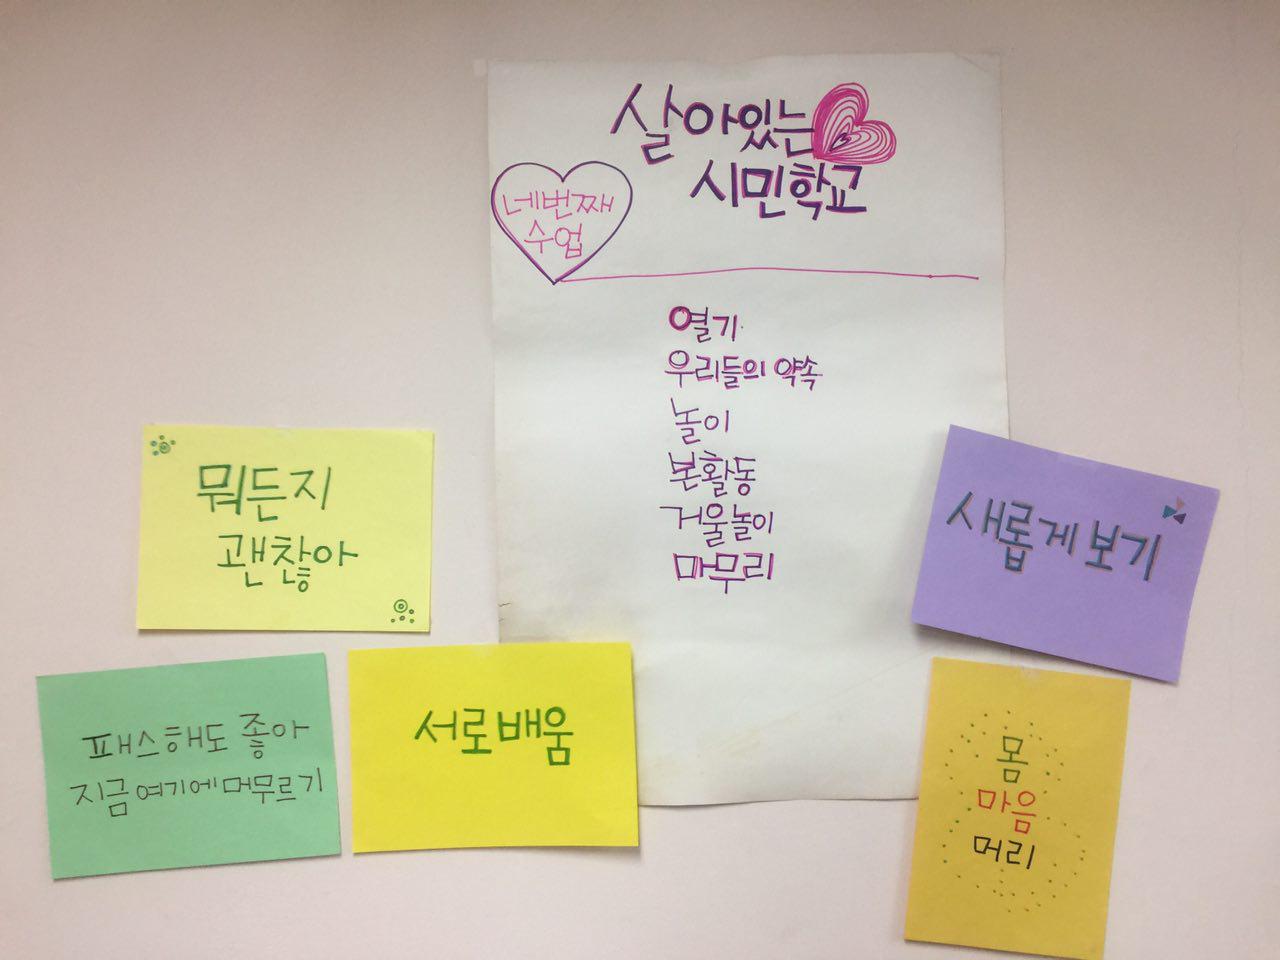 살아있는
시민학교
네번째
수업
열기
우리들의 약속
놀이
본활동
거울놀이
마무리
뭐든지
괜찮아
패스해도 좋아
지금 여기에 머무르기
서로배움
새롭게 보기
몸
마음
머리